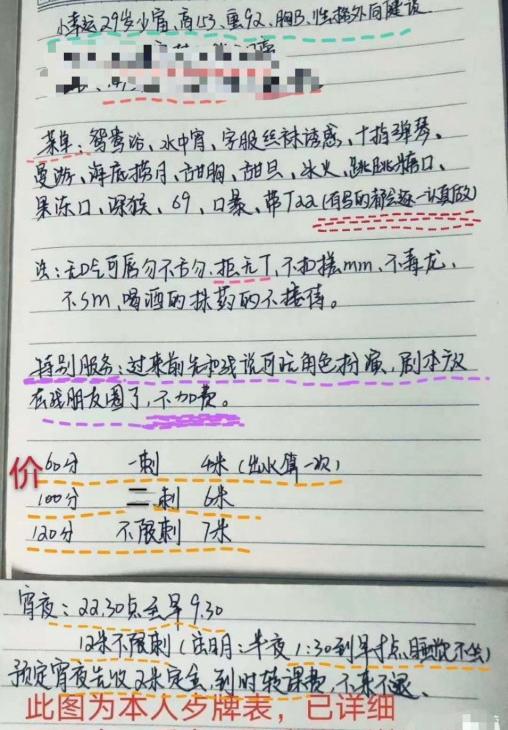 小幸运29岁少宵,高153,重92,胸B,性格外向健谈
菜单:鸳鸯浴、水中宵、字服丝袜诱惑、十指弹琴、
曼游、海底捞月、甜胸、甜旦、冰火、跳跳糖口、
果冻口、深猴、69、口暴、带T22(有写的都会逐一认真做)
注:无口气可唇勿不舌勿、拒无T、不扣搓mm、不毒龙、
不sm、喝酒的抹药的不接待。
特别服务:过来前先和我说可玩角色扮演,剧本放
在我朋友圈了,不加费。
价
60分 一刺 4米(出水算一次)
100分 二刺 6米
120分 不限刺 7米
宵夜:22.30点至早9.30
12米不限刺
预定宵夜先收2米定金,到时转课费,不来不退、
此图为本人步牌表,已详细